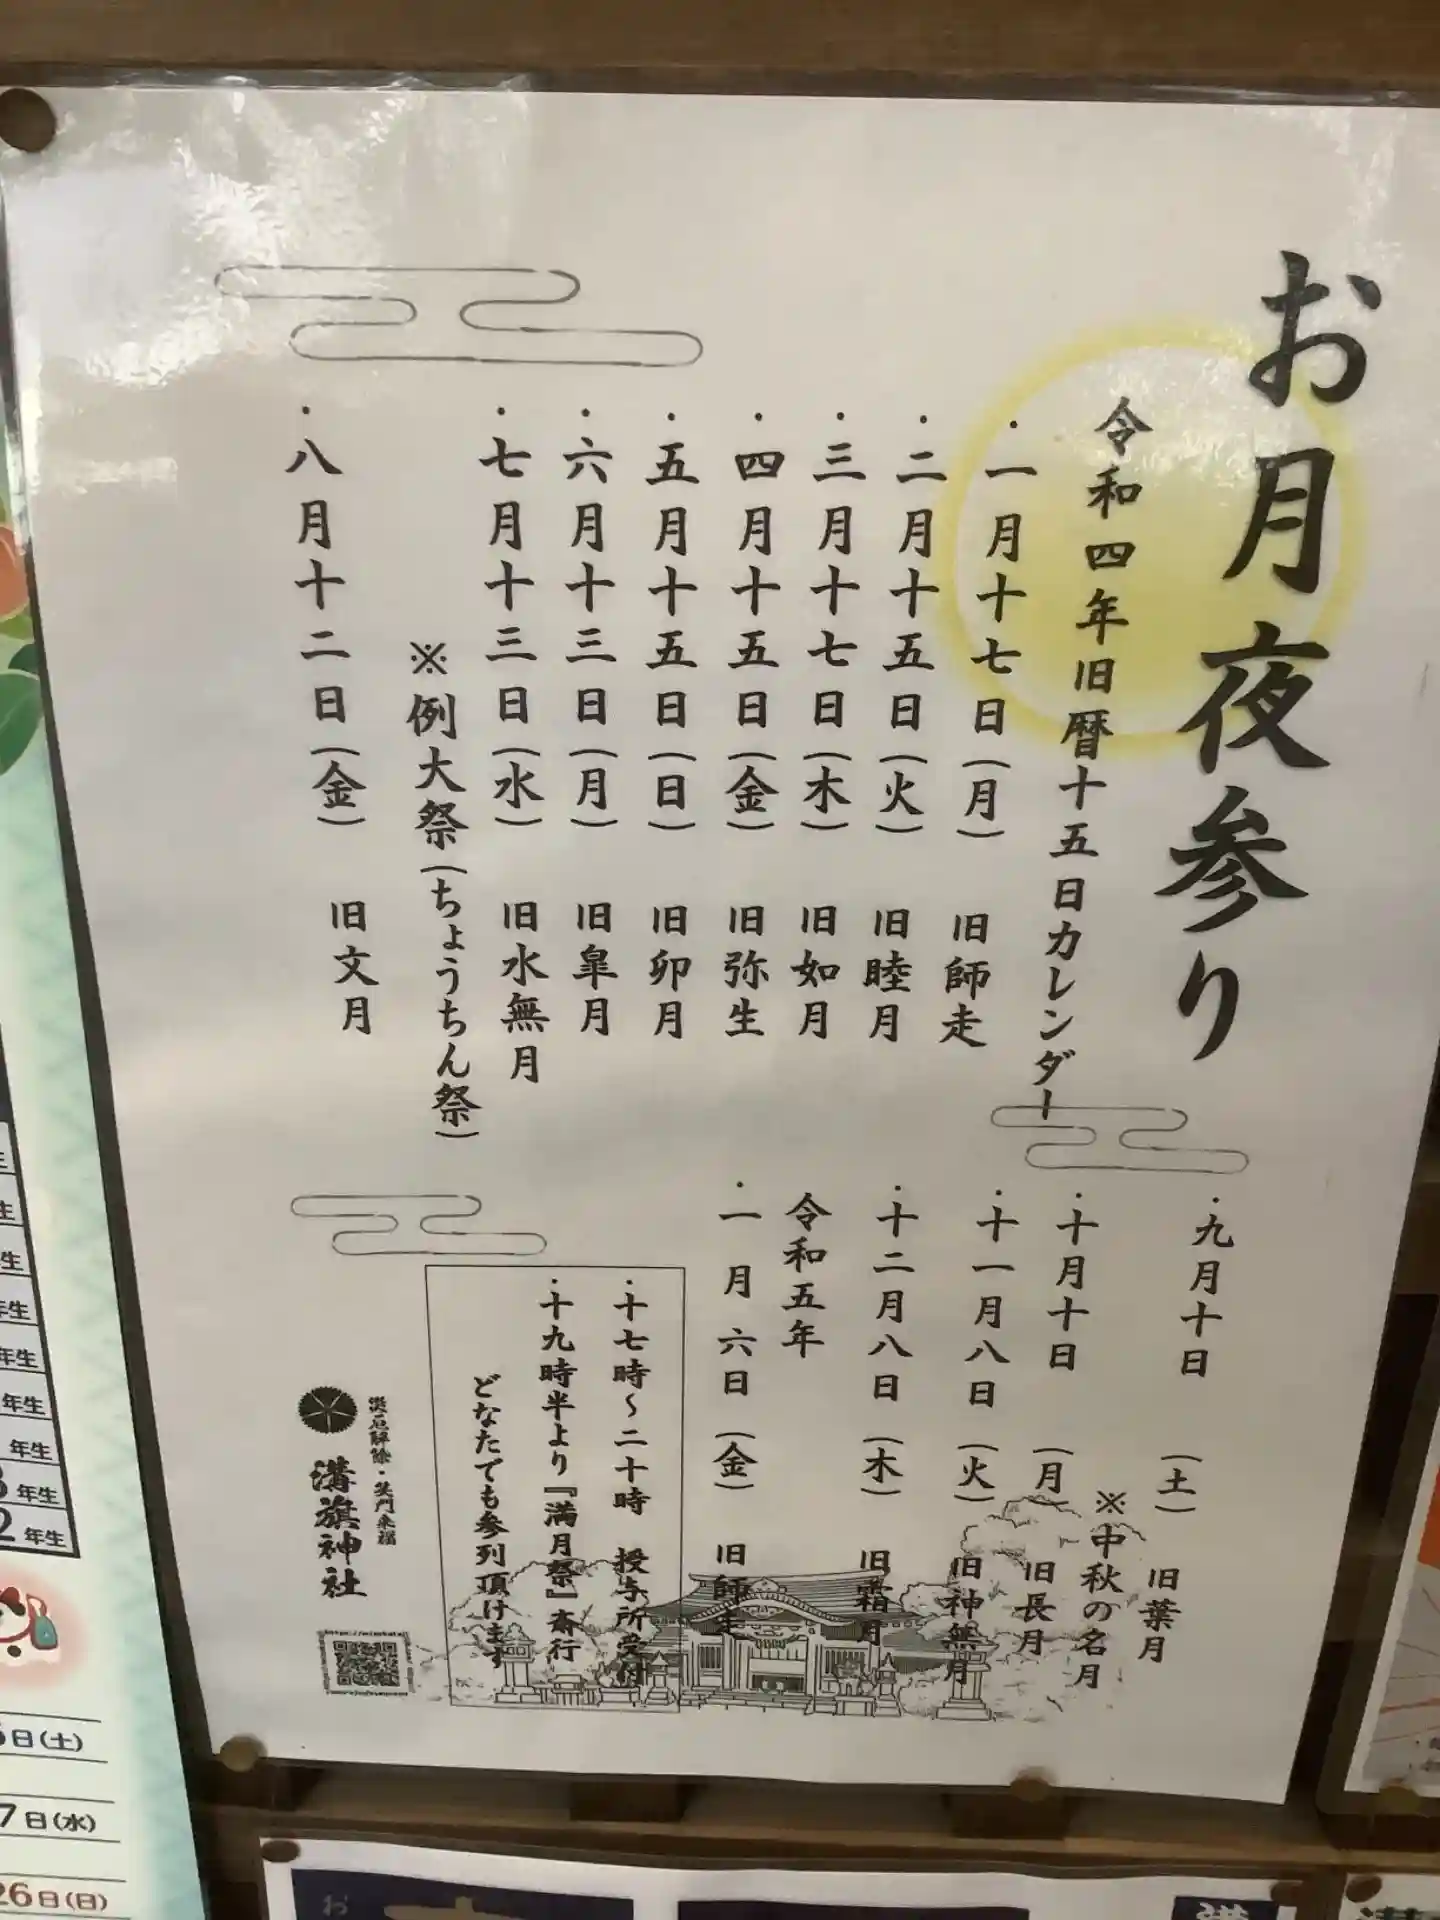 お月夜参り
令和四年旧暦十五日カレンダー
・一月十七日(月) 旧師走
・二月十五日(火) 旧睦月
・三月十七日(木) 旧如月
・四月十五日(金) 旧弥生
・五月十五日(日) 旧卯月
・六月十三日(月) 旧皐月
・七月十三日(水) 旧水無月
※例大祭(ちょうちん祭)
・八月十二日(金) 旧文月
・九月十日(土) 旧葉月
※中秋の名月
・十月十日(月) 旧長月
・十一月八日(火) 旧神無月
・十二月八日(木) 旧霜月
令和五年
・一月六日(金) 旧師走
・十七時〜二十時 授与所受付
・十九時半より『満月祭』斎行
どなたでも参列頂けます
災厄解除・笑門来福
溝旗神社
年生
年生
年生
年生
年生
2年生
日(土)
7日(水)
26日(日)
お